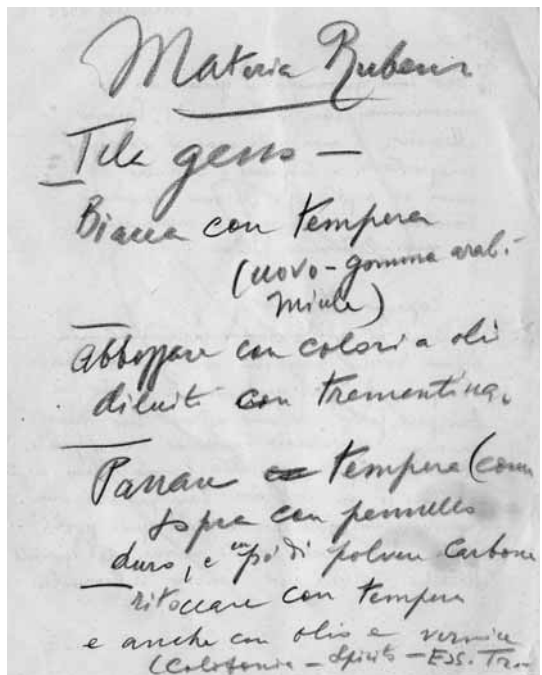 Materia Rubens
Tela gesso —
Biacca con tempera
(uovo - gomma arab.
miele)
abbozzare con colori a olio
diluiti con trementina.
Passare tempera (come
sopra con pennello
duro, e un po' di polvere carbone
ritoccare con tempera
e anche con olio e vernice
(Colofonia - Spirito - Ess. Tr.